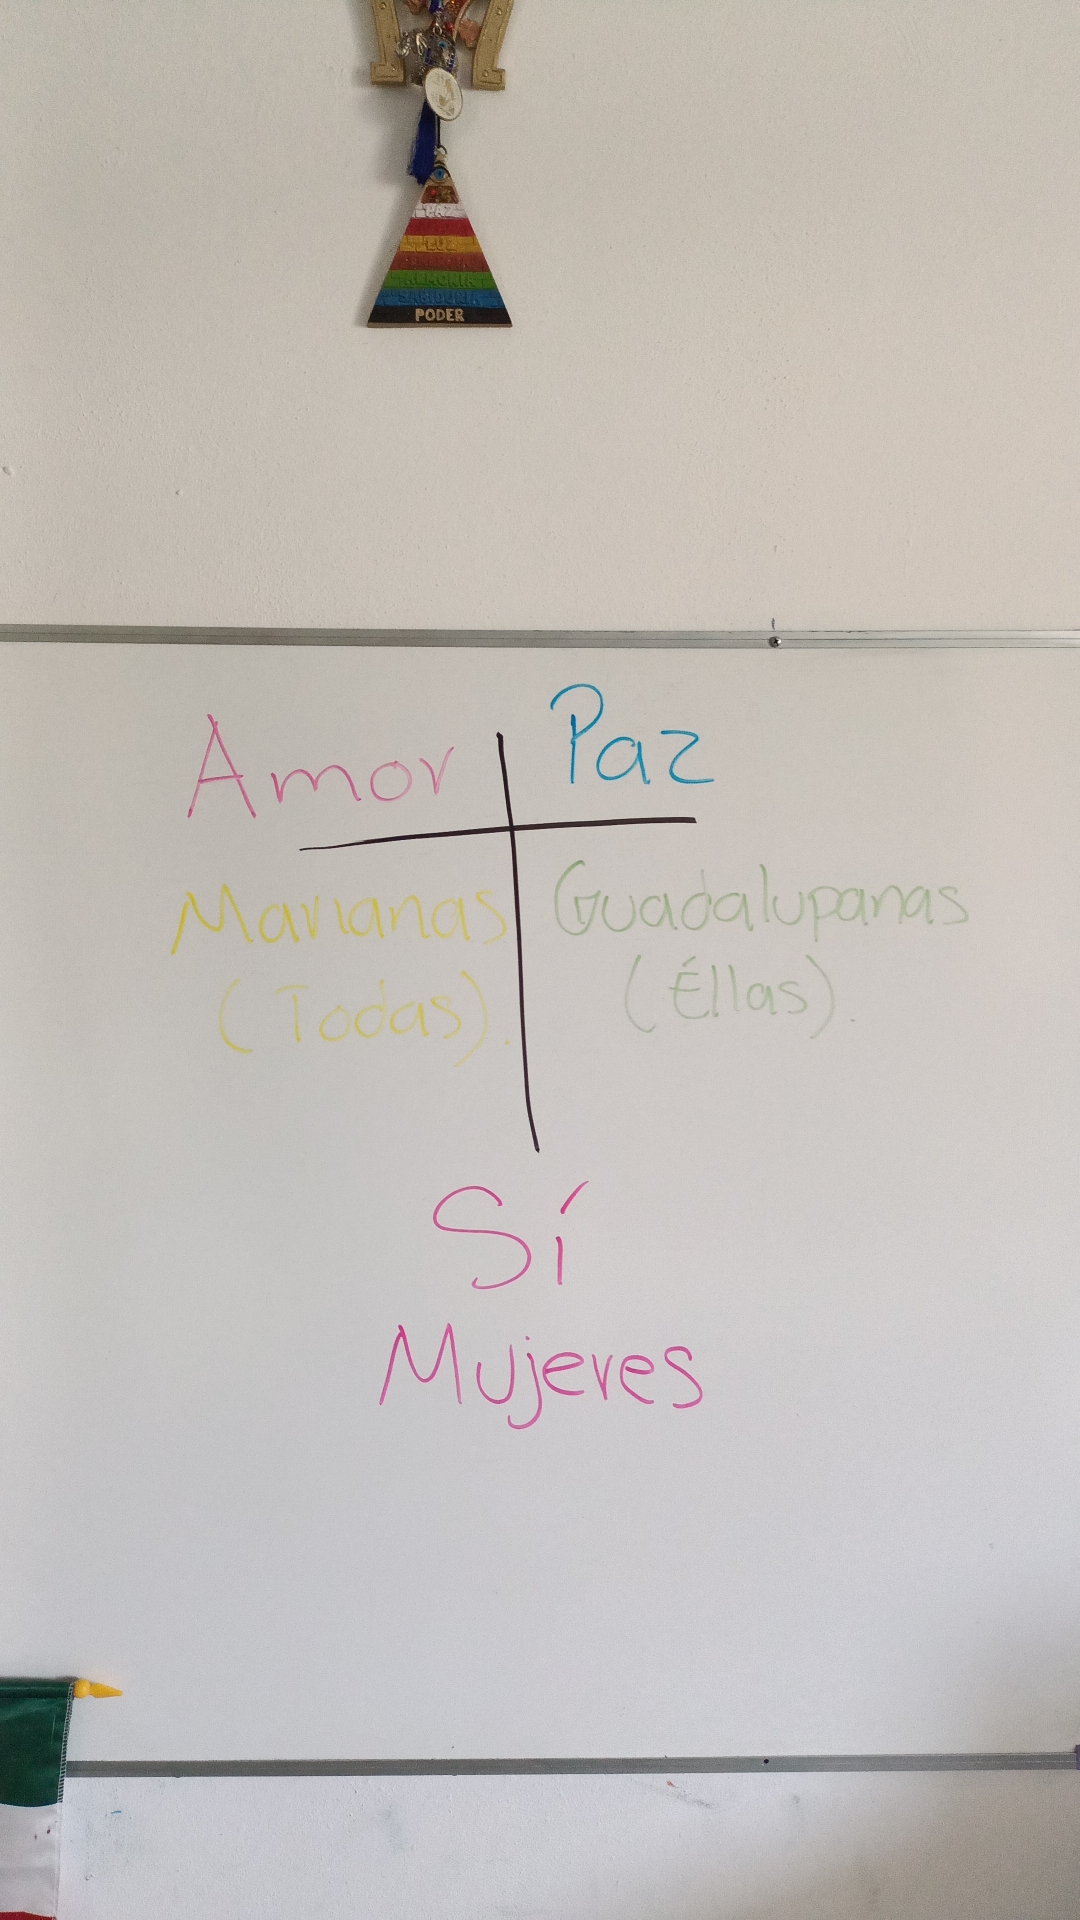 PAZ
LUZ
ARMONIA
SABIDURIA
PODER
Amor
Paz
Marianas
(Todas).
Guadalupanas
(Éllas).
Sí
Mujeres